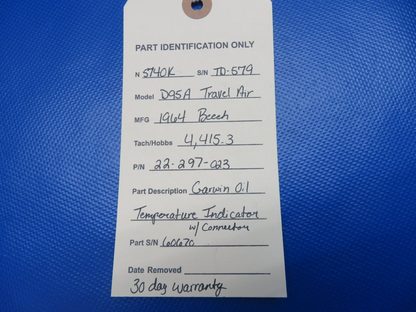 PART IDENTIFICATION ONLY
N 5740K S/N TD-579
Model D95A Travel Air
MFG 1964 Beech
Tach/Hobbs 4,415.3
P/N 22-297-023
Part Description Garwin Oil
Temperature Indicator
w/ Connector
Part S/N 60670
Date Removed
30 day warranty